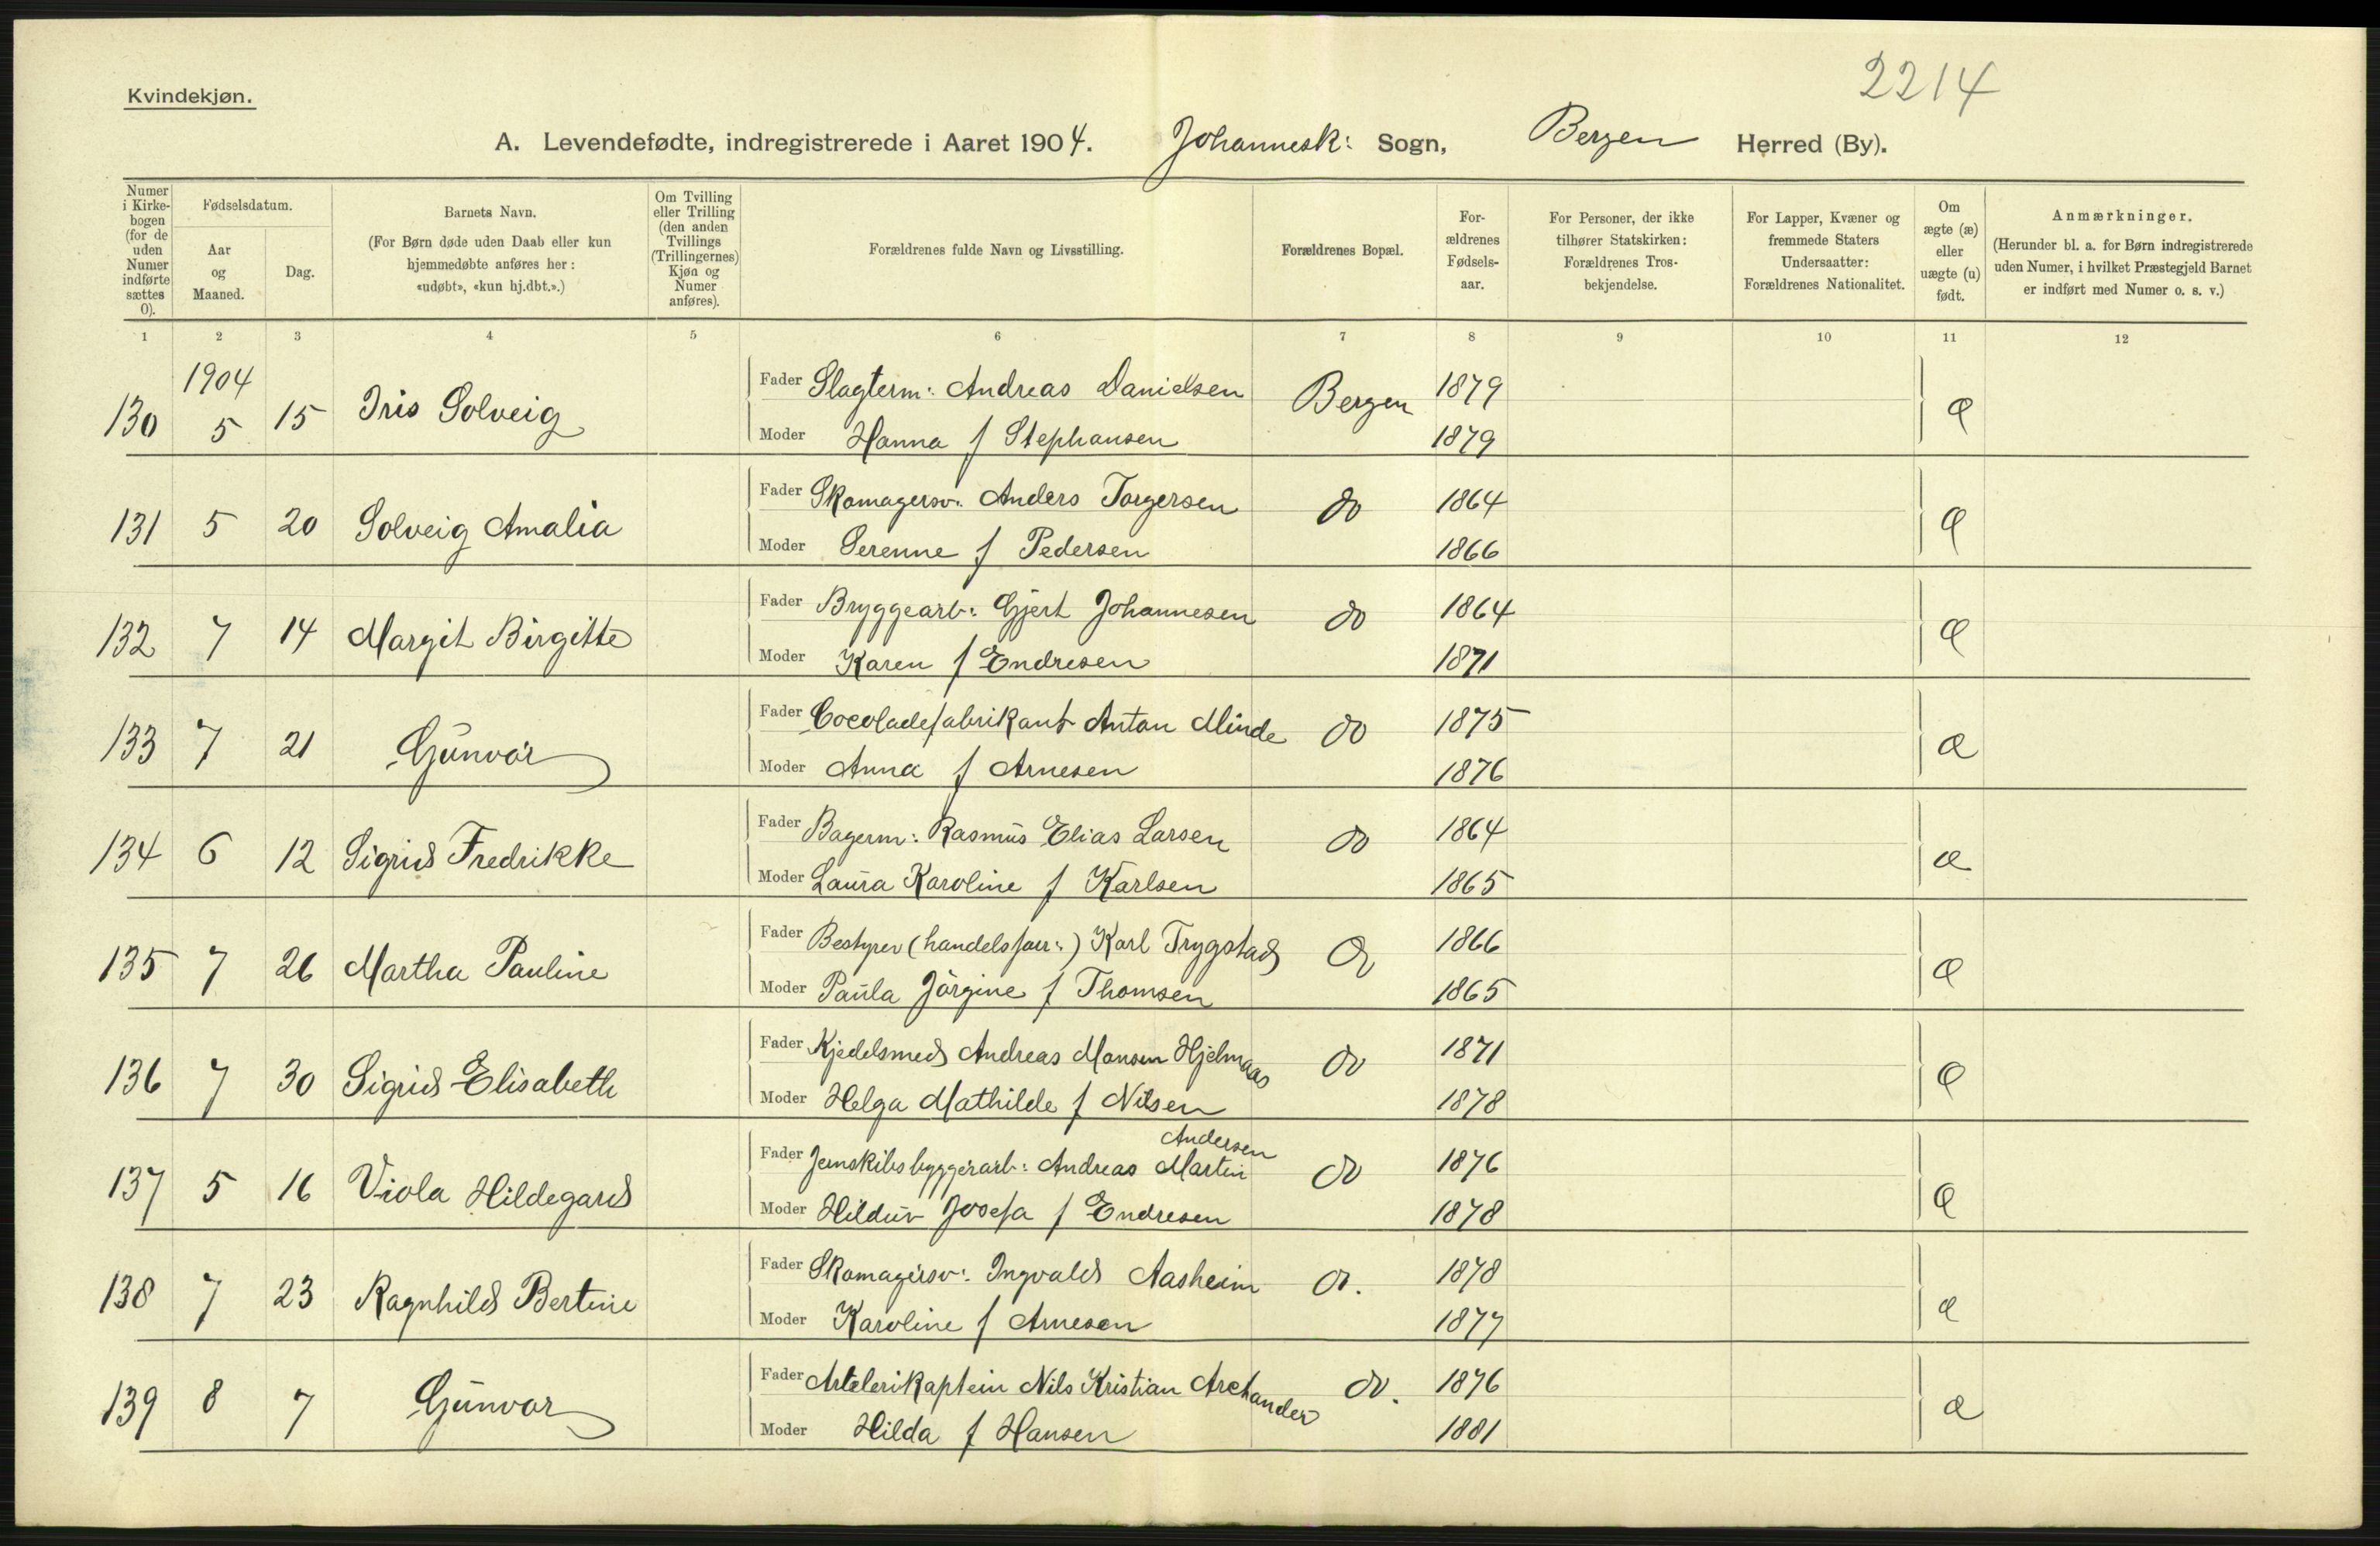 2214
Kvindekjøn.
A. Levendefødte, indregistrerede i Aaret 1904. Johannesk: Sogn, Bergen Herred (By).
Numer i Kirkebogen (for de uden Numer indførte sættes 0).
Fødselsdatum.
Aar og Maaned.
Dag.
Barnets Navn.
(For Børn døde uden Daab eller kun hjemmedøbte anføres her: «udøbt», «kun hj.dbt.».)
Om Tvilling eller Trilling (den anden Tvillings (Trillingernes) Kjøn og Numer anføres).
Forældrenes fulde Navn og Livsstilling.
Forældrenes Bopæl.
Forældrenes Fødselsaar.
For Personer, der ikke tilhører Statskirken: Forældrenes Trosbekjendelse.
For Lapper, Kvæner og fremmede Staters Undersaatter: Forældrenes Nationalitet.
Om ægte (æ) eller uægte (u) født.
Anmærkninger.
(Herunder bl. a. for Børn indregistrerede uden Numer, i hvilket Præstegjeld Barnet er indført med Numer o. s. v.)
1 2 3 4 5 6 7 8 9 10 11 12
1904
130 5 15 Iris Solveig Fader Slagterm: Andreas Danielsen Bergen 1879 æ
Moder Hanna f Stephansen 1879
131 5 20 Solveig Amalia Fader Skomagersv: Anders Torgersen do 1864 æ
Moder Serenne f Pedersen 1866
132 7 14 Margit Birgitte Fader Bryggearb: Gjert Johannesen do 1864 æ
Moder Karen f Endresen 1871
133 7 21 Gunvor Fader Cocoladefabrikant Anton Minde do 1875 æ
Moder Anna f Arnesen 1876
134 6 12 Sigrid Fredrikke Fader Bagerm: Rasmus Elias Larsen do 1864 æ
Moder Laura Karoline f Karlsen 1865
135 7 26 Martha Pauline Fader Bestyrer (handelsfor:) Karl Trygstad do 1866 æ
Moder Paula Jörgine f Thomsen 1865
136 7 30 Sigrid Elisabeth Fader Kjedelsmed Andreas Monsen Hjelmaas do 1871 æ
Moder Helga Mathilde f Nilsen 1878
137 5 16 Viola Hildegard Fader Jernskibsbyggerarb: Andreas Martin Andersen do 1876 æ
Moder Hildur Josefa f Endresen 1878
138 7 23 Ragnhild Bertine Fader Skomagersv: Ingvald Aasheim do. 1878 æ
Moder Karoline f Arnesen 1877
139 8 7 Gunvor Fader Artelerikaptein Nils Kristian Archander do. 1876 æ
Moder Hilda f Hansen 1881